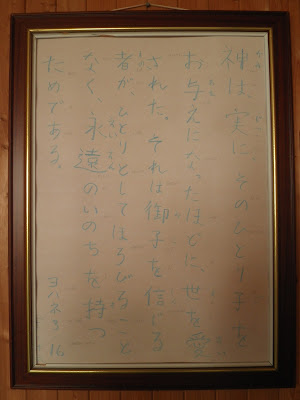 神は、実に そのひとり子を
お与えになったほどに、世を愛
された。それは御子を信じる
者が、ひとりとしてほろびること
なく、永遠のいのちを持つ
ためである。 ヨハネ3 16